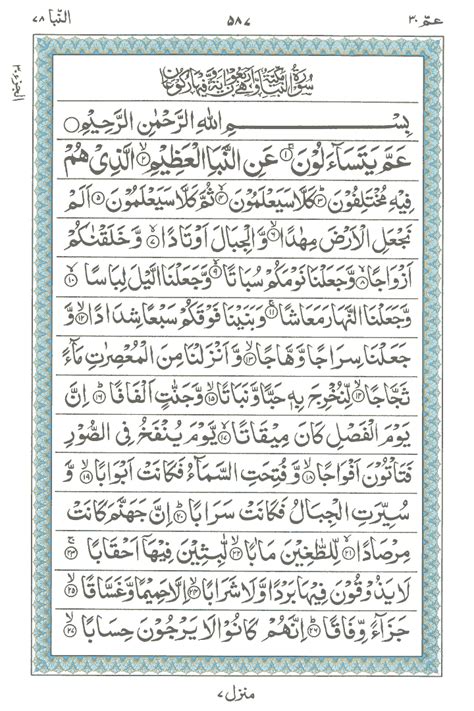 عمّ ٣٠
٥٨٧
النبا ٧٨
سُوْرَةُ النَّبَاِ مَكِّيَّةٌ وَّهِيَ اَرْبَعُوْنَ اٰيَةً وَّفِيْهَا رُكُوْعَانِ
بِسْمِ اللهِ الرَّحْمٰنِ الرَّحِيْمِ
عَمَّ يَتَسَآءَلُوْنَ ﴿١﴾ عَنِ النَّبَاِ الْعَظِيْمِ ﴿٢﴾ الَّذِيْ هُمْ
فِيْهِ مُخْتَلِفُوْنَ ﴿٣﴾ كَلَّا سَيَعْلَمُوْنَ ﴿٤﴾ ثُمَّ كَلَّا سَيَعْلَمُوْنَ ﴿٥﴾ اَلَمْ
نَجْعَلِ الْاَرْضَ مِهٰدًا ﴿٦﴾ وَّالْجِبَالَ اَوْتَادًا ﴿٧﴾ وَّخَلَقْنٰكُمْ
اَزْوَاجًا ﴿٨﴾ وَّجَعَلْنَا نَوْمَكُمْ سُبَاتًا ﴿٩﴾ وَّجَعَلْنَا الَّيْلَ لِبَاسًا ﴿١٠﴾
وَّجَعَلْنَا النَّهَارَ مَعَاشًا ﴿١١﴾ وَّبَنَيْنَا فَوْقَكُمْ سَبْعًا شِدَادًا ﴿١٢﴾ وَّ
جَعَلْنَا سِرَاجًا وَّهَّاجًا ﴿١٣﴾ وَّاَنْزَلْنَا مِنَ الْمُعْصِرٰتِ مَآءً
ثَجَّاجًا ﴿١٤﴾ لِّنُخْرِجَ بِهٖ حَبًّا وَّنَبَاتًا ﴿١٥﴾ وَّجَنّٰتٍ اَلْفَافًا ﴿١٦﴾ اِنَّ
يَوْمَ الْفَصْلِ كَانَ مِيْقَاتًا ﴿١٧﴾ يَّوْمَ يُنْفَخُ فِى الصُّوْرِ
فَتَاْتُوْنَ اَفْوَاجًا ﴿١٨﴾ وَّفُتِحَتِ السَّمَآءُ فَكَانَتْ اَبْوَابًا ﴿١٩﴾ وَّ
سُيِّرَتِ الْجِبَالُ فَكَانَتْ سَرَابًا ﴿٢٠﴾ اِنَّ جَهَنَّمَ كَانَتْ
مِرْصَادًا ﴿٢١﴾ لِّلطّٰغِيْنَ مَاٰبًا ﴿٢٢﴾ لّٰبِثِيْنَ فِيْهَآ اَحْقَابًا ﴿٢٣﴾
لَا يَذُوْقُوْنَ فِيْهَا بَرْدًا وَّلَا شَرَابًا ﴿٢٤﴾ اِلَّا حَمِيْمًا وَّغَسَّاقًا ﴿٢٥﴾
جَزَآءً وِّفَاقًا ﴿٢٦﴾ اِنَّهُمْ كَانُوْا لَا يَرْجُوْنَ حِسَابًا ﴿٢٧﴾
منزل ٧
الجزء ٣٠